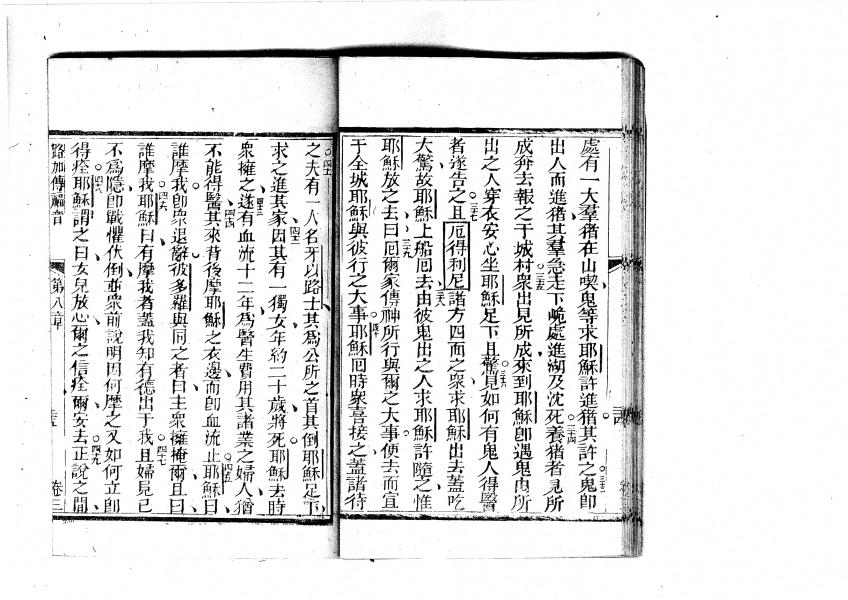 處有一大羣猪在山喫鬼等求耶穌許進猪其許之鬼卽
三三
出人而進猪其羣急走下峗處進湖及沈死養猪者見所
三四
成奔去報之于城村衆出見所成來到耶穌卽遇鬼由所
三五
出之人穿衣安心坐耶穌足下且驚見如何有鬼人得醫
三六
者遂告之且厄得利尼諸方四面之衆求耶穌出去蓋吃
三七
大驚故耶穌上船囘去由彼鬼出之人求耶穌許隨之惟
三八
耶穌放之去曰囘爾家傳神所行與爾之大事便去而宣
三九
于全城耶穌與彼行之大事耶穌囘時衆喜接之蓋諸待
四十
之夫有一人名牙以路士其爲公所之首其倒耶穌足下
四一
求之進其家因其有一獨女年約二十歲將死耶穌去時
四二
衆擁之遂有血流十二年爲醫生費用其諸業之婦人猶
四三
不能得醫其來背後摩耶穌之衣邊而卽血流止耶穌曰
四四
四五
誰摩我卽衆退辭彼多羅與同之者曰主衆擁掩爾且曰
誰摩我耶穌曰有摩我者蓋我知有德出于我且婦見已
四六
四七
不爲隱卽戰懼伏倒並衆前說明因何摩之又如何立卽
得痊耶穌謂之曰女兒放心爾之信痊爾安去正說之間
四八
四九
路加傳福音
第八章
卷三